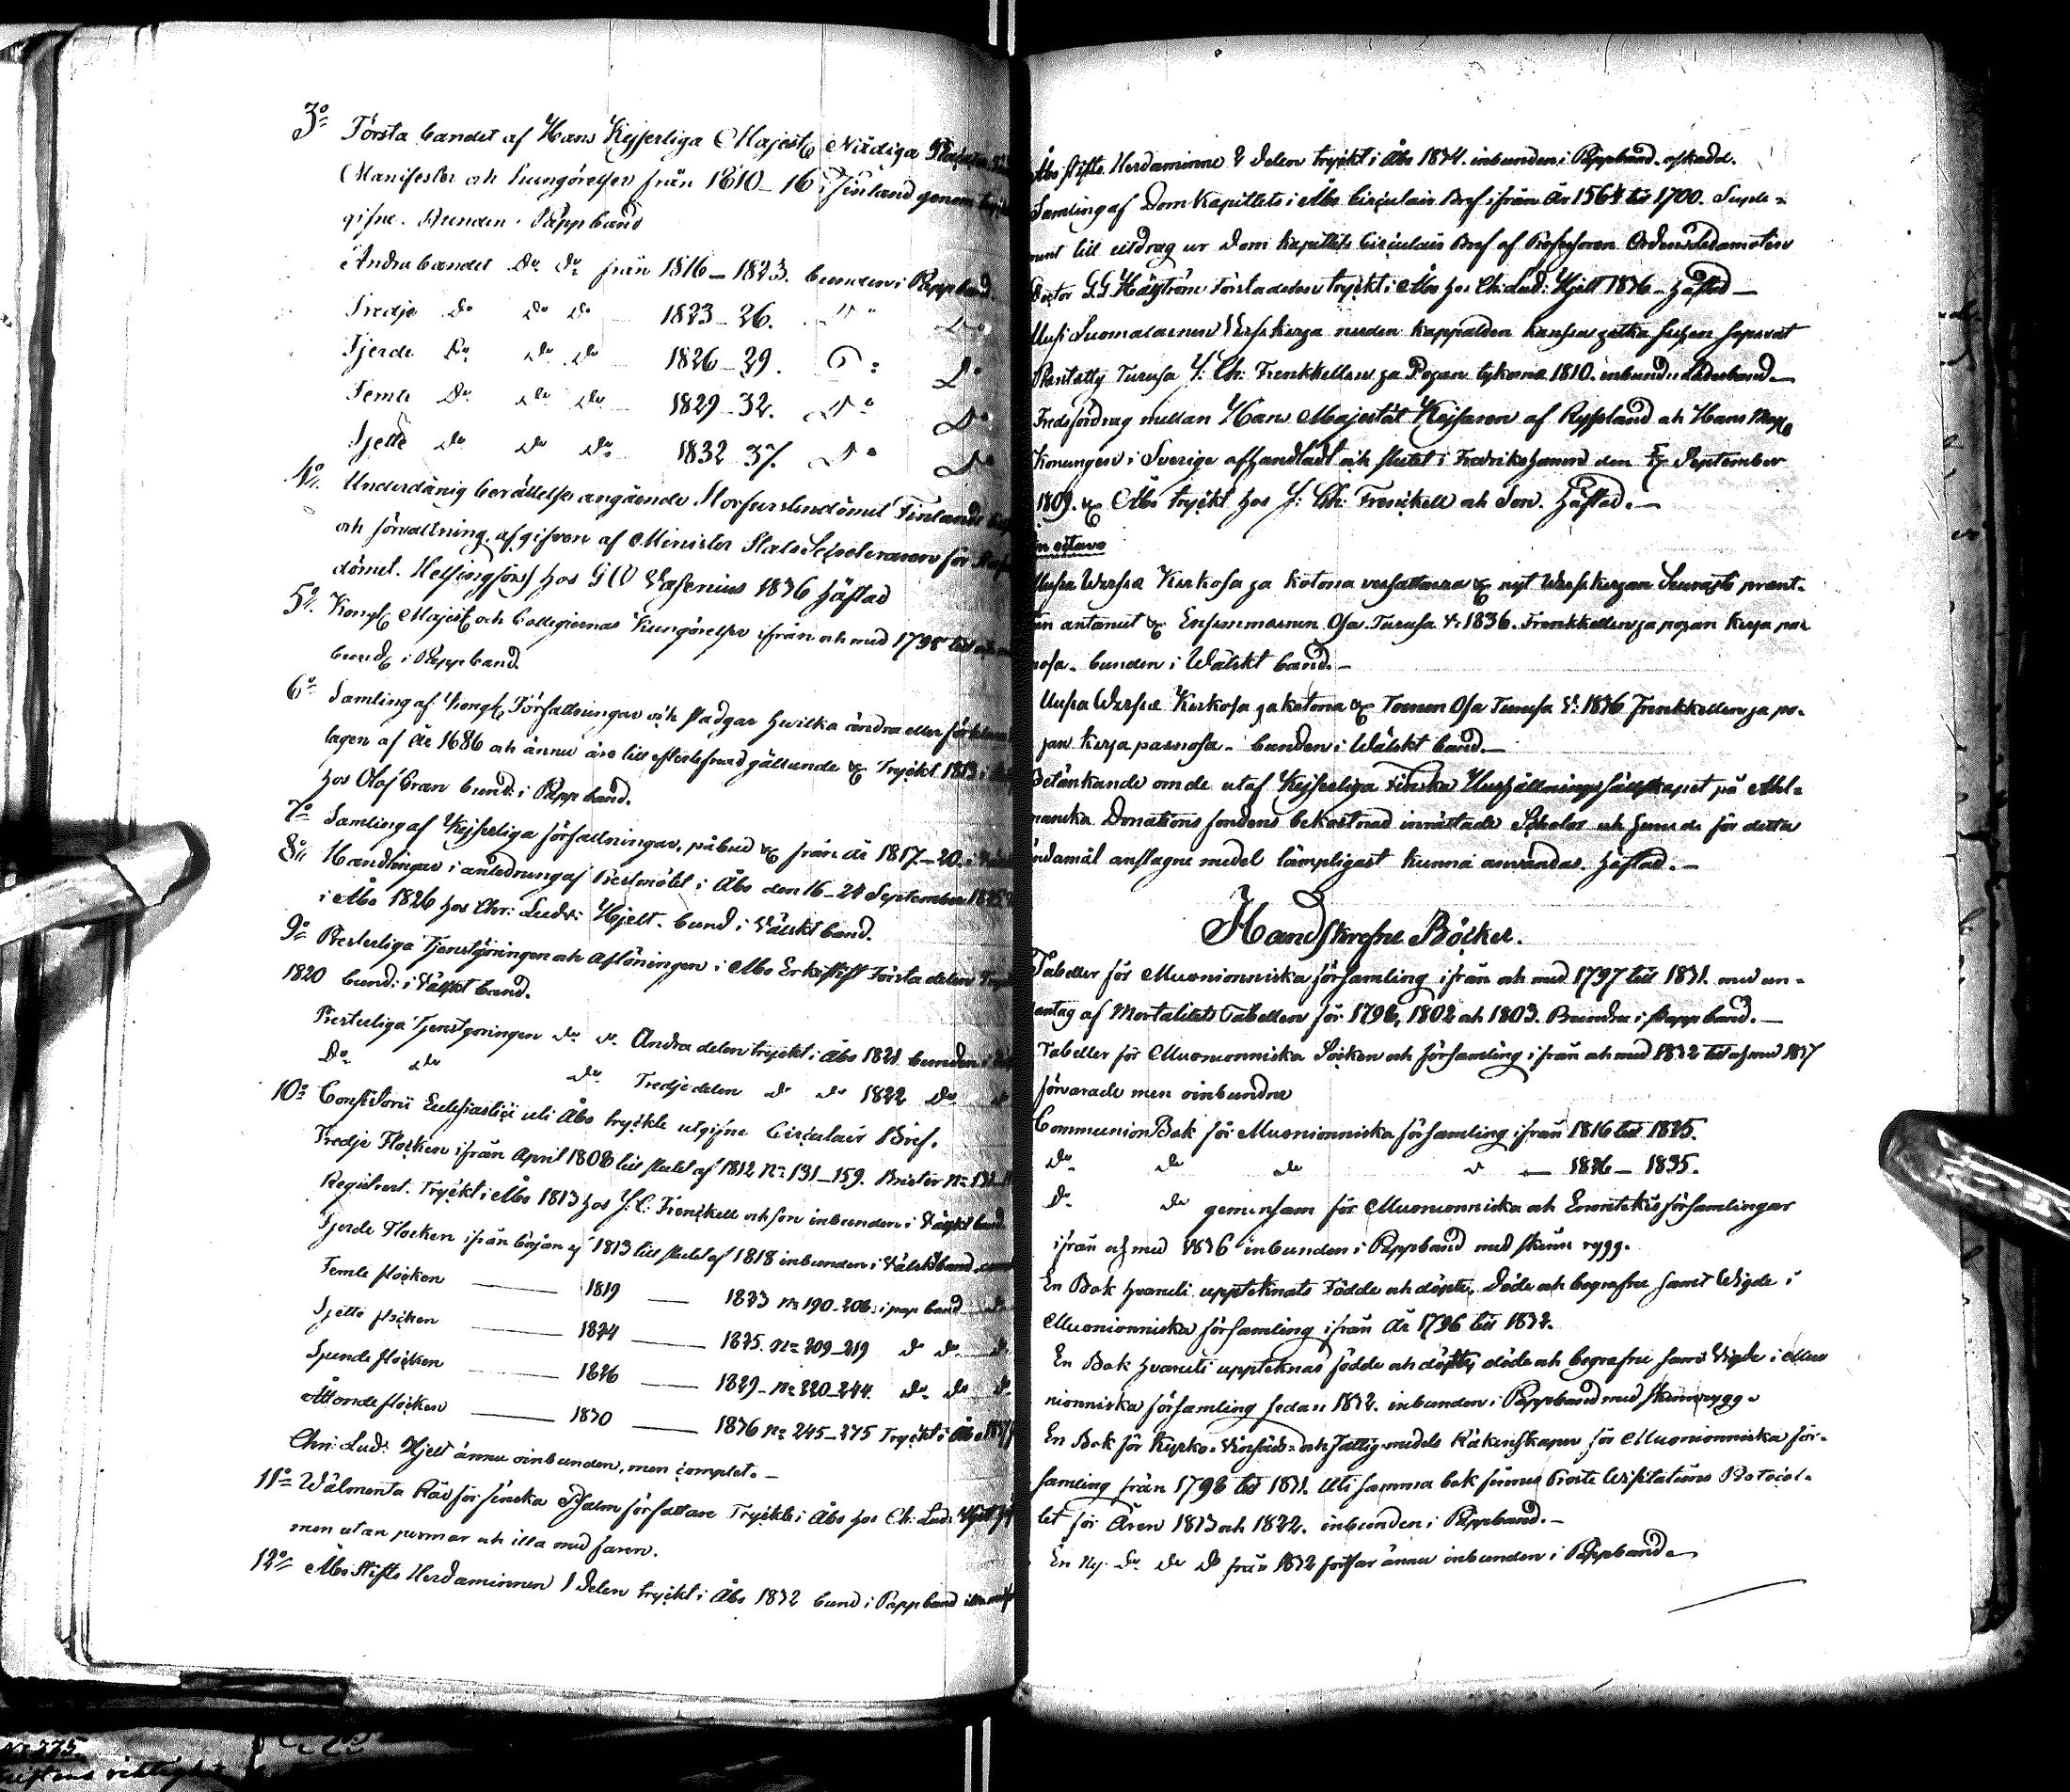 3º Första bandet af Hans Kejserliga Majest. Nådiga
Manifester och kungörelser från 1810–16 i Finland genom
gifne. Bunden i Pappband
Andra bandet Do Do från 1816–1823. bunden i Pappband.
Tredje Do Do Do 1823–26. Do Do
Fjerde Do Do Do 1826–29. Do Do
Femte Do Do Do 1829–32. Do Do
Sjette Do Do Do 1832 37. Do Do
4º. Underdånig berättelse angående Storfurstendömet Finlands
och förvaltning, afgifven af Minister Stats Secreteraren för
dömet. Helsingfors hos G W Wasenius 1836 häftad
5º. Kongl. Majest. och Collegiernas Kungörelser ifrån och med 1795 till
bund. i Pappband.
6º Samling af Kongl. Författningar och stadgar hwilka ändra eller
lagen af År 1686 och ännu äro till efterlefnad gällande &c Tryckt 1813 i
hos Olof Gran bund. i Pappband.
7º Samling af Kejserliga författningar, påbud &c från år 1817–20.
8º Handlingar i anledning af Prestmötet i Åbo den 16–24 September 1825
i Åbo 1826 hos Chr: Ludv: Hjelt. bund i Wälskt band.
9º Presterliga Tjenstgöringen och aflöningen i Åbo Erkestift Första delen
1820 bund: i Wälskt band.
Presterliga Tjenstgöringen Do Do Andra delen tryckt i Åbo 1821 bunden i
Do Do Do Tredje delen Do Do 1822 Do Do
10º Consistorii Ecclesiastici uti Åbo tryckte utgifne Circulair Bref.
Tredje Flocken ifrån April 1808 till slutet af 1812 No 131–159. Brister No
Registret. Tryckt i Åbo 1813 hos J. C. Frenckell och son inbunden i Wälskt band
Fjerde Flocken ifrån början af 1813 till slutet af 1818 inbunden i Wälskt band
Femte flocken — 1819 — 1823 No 190–208. i papband Do
Sjette flocken — 1824 — 1825. No 209–219 Do Do Do
Sjunde flocken — 1826 — 1829– No 220–244. Do Do Do
Åttonde flocken — 1830 — 1836 No 245–275 Tryckt i Åbo
Chri: Lud: Hjelt ännu oinbunden, men complet.–
11º Wälmenta Råd för finska Psalm författare Tryckt i Åbo hos Ch. Lud: Hjelt
men utan permar och illa med faren.
12º Åbo Stifts Herdaminnen 1 delen tryckt i Åbo 1832 bund i Pappband
Åbo stifts Herdaminne 2 delen tryckt i Åbo 1834. inbunden i Pappband. oskadd.
Samling af Dom Kapitlets i Åbo Circulair Bref ifrån år 1564 till 1700. Suple-
ment till utdrag ur Dom kapitlets Circulair Bref af Professoren Ordensledamoten
Doctor G G Hällström Första delen tryckt i Åbo hos Chr: Lud: Hjelt 1836– häftad–
Uusi Suomalainen Virsikirja neuden kappalden kanssa jotka siihen sopivat
Prentätty Turusa J: Ch: Frenkkellin ja Pojan tykönä 1810. inbunden läderband.–
Fredsfördrag mellan Hans Majestät Kejsaren af Ryssland och Hans Maj.
Konungen i Sverige afhandladt och slutet i Fredrikshamn den September
1809. &c Åbo tryckt hos J: Ch: Frenckell och Son. häftad.–
In octavo
Uusia Wirsiä Kirkosa ja kotona veisattavia &c nyt Wirsikirjan Seurasta prant-
tiin antanut &c Ensimmäinen Osa. Turusa v: 1836. Frenkkellin ja pojan kirja pai-
nosa. bunden i Wälskt band.–
Uusia Wirsiä Kirkosa ja kotona &c Toinen Osa Turusa v: 1836 Frenkkellin ja po-
jan kirja painosa. bunden i Wälskt band.–
Betänkande om de utaf Kejserliga Finska Hushållnings sällskapet på Ahl-
manska Donations fondens bekostnad inrättade Scholor och huru de för detta
ändamål anslagne medel lämpligast kunna användas. häftad.–
Handskrefne Böcker.
Tabeller för Muonionniska församling ifrån och med 1797 till 1831. med un-
dantag af Mortalitets Tabellen för 1798, 1802 och 1803. Bundna i pappband.–
Tabeller för Muonionniska Socken och församling ifrån och med 1832 till och med 1837
förvarade men oinbundne
Communion Bok för Muonionniska församling ifrån 1816 till 1825.
Do Do Do Do — 1826–1835.
Do Do gemensam för Muonionniska och Enontekis församlingar
ifrån och med 1836 inbunden i Pappband med skinn rygg.
En Bok hvaruti upptecknats Födde och döpte, Döde och begrafne samt Wigde i
Muonionniska församling ifrån År 1796 till 1832.
En Bok hvaruti upptecknas födde och döpte, döde och begrafne samt Vigde i Muo
nionniska församling sedan 1832. inbunden i Pappband med skinnrygg.
En Bok för Kyrko- Vinsäds- och Fattigmedels Räkenskaper för Muonionniska för-
samling från 1798 till 1831. Uti samma bok finnes Proste Visitations Protocol-
let för Åren 1813 och 1822. inbunden i Pappband.–
En Ny Do Do Do från 1832 fortfar ännu inbunden i Pappband.